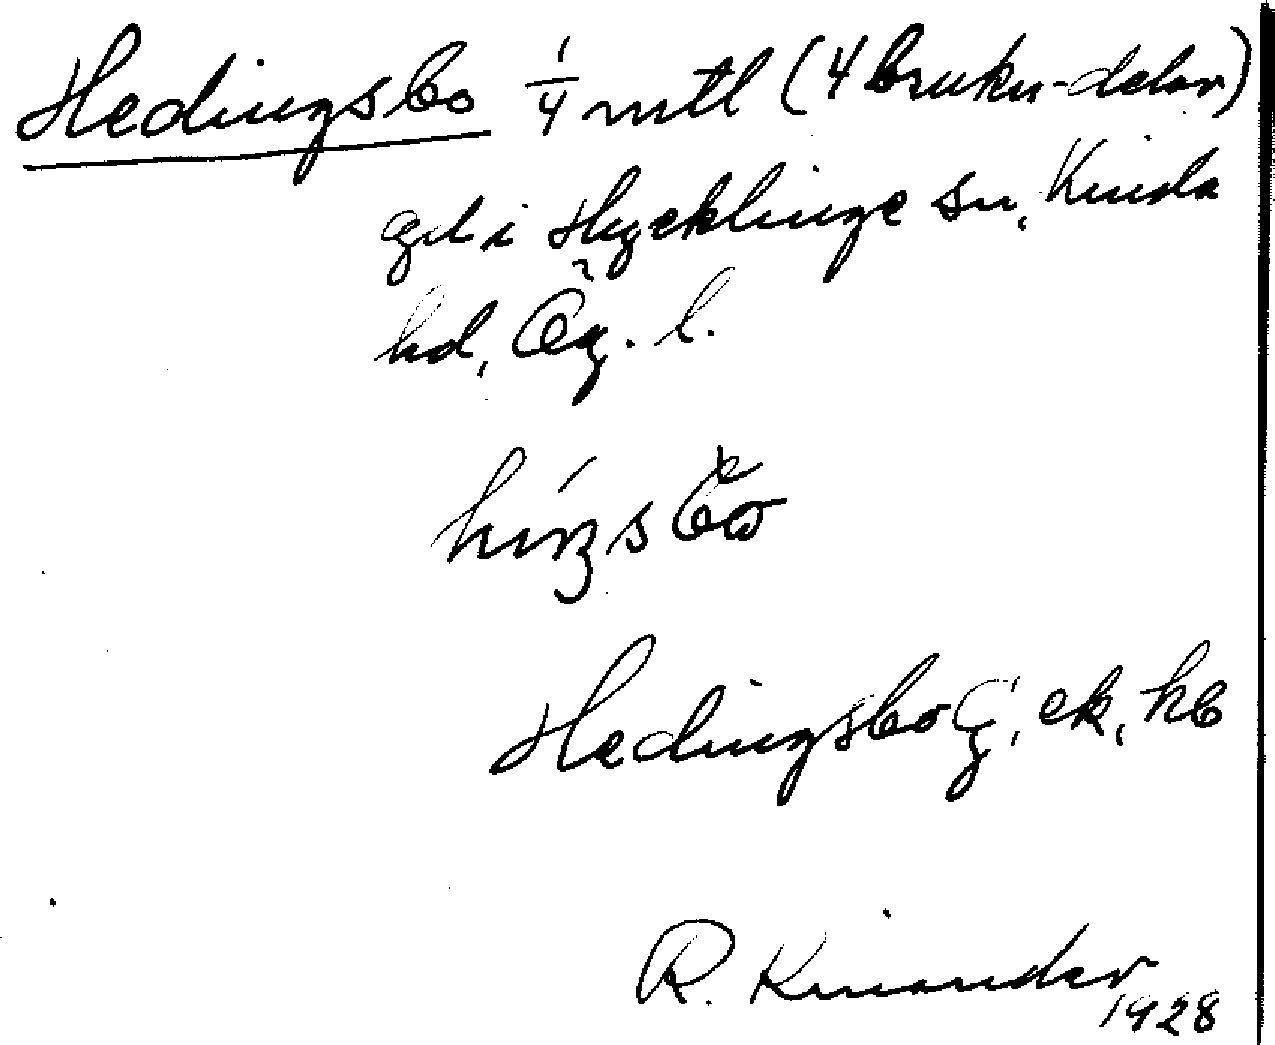 Hedingsbo 1/4 mtl (4 bruksdelar)
gd i Hycklinge sn, Kinda
hd, Ög. l.
Hedingsbo G, ek, kb
R. Kinander
1928